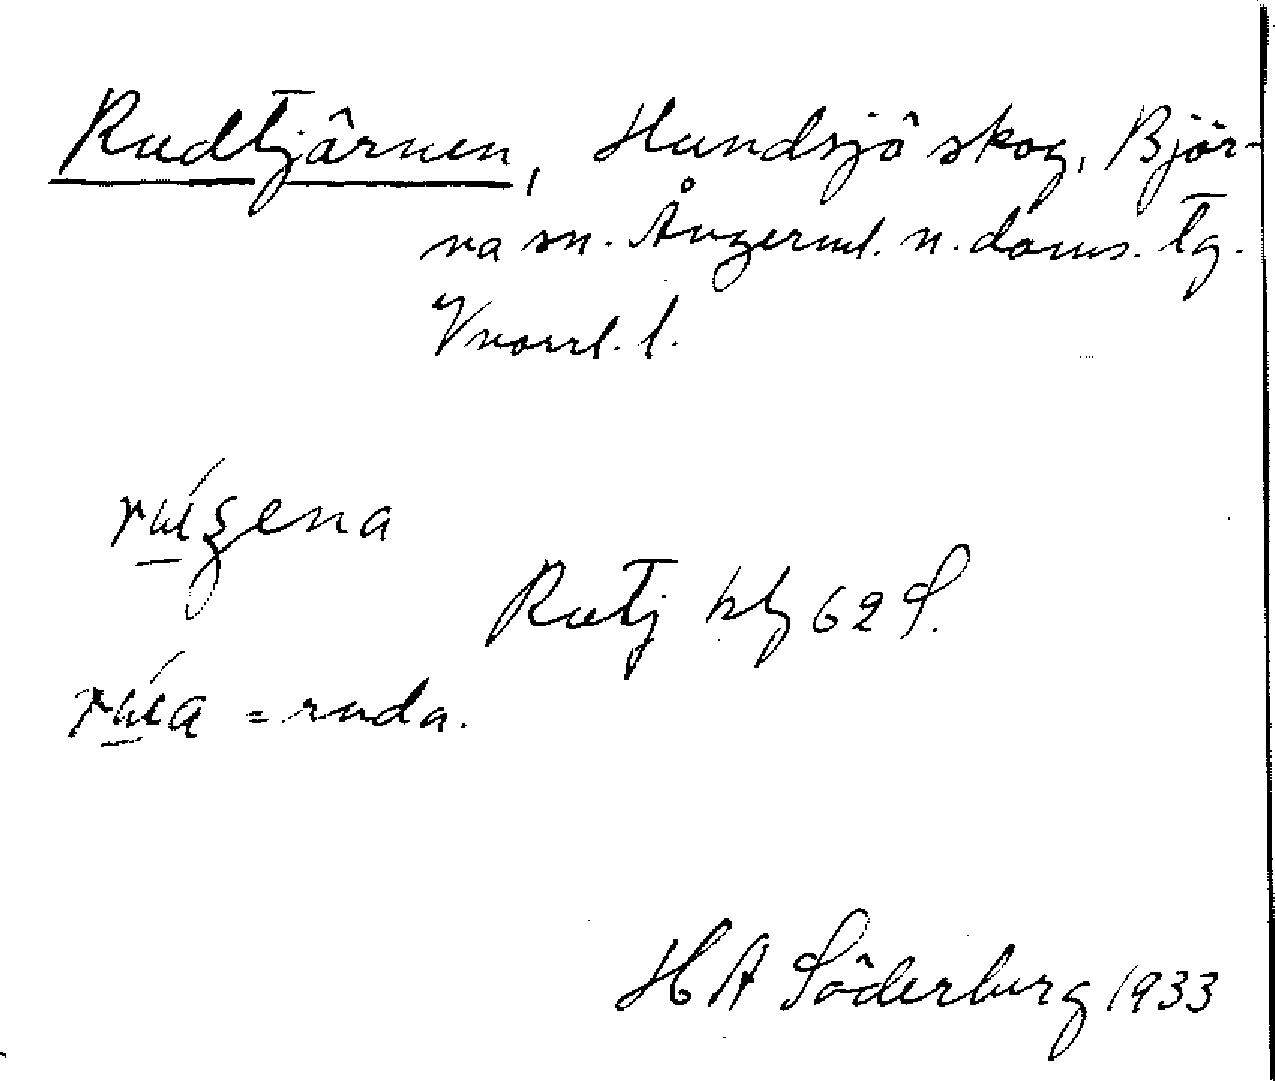 Rudtjärnen, Hundsjö skog, Björ-
na sn. Ångerml. n. doms. tg.
Vnorrl. l.
Rutj kbl 62 S.
= ruda.
H A Söderberg 1933